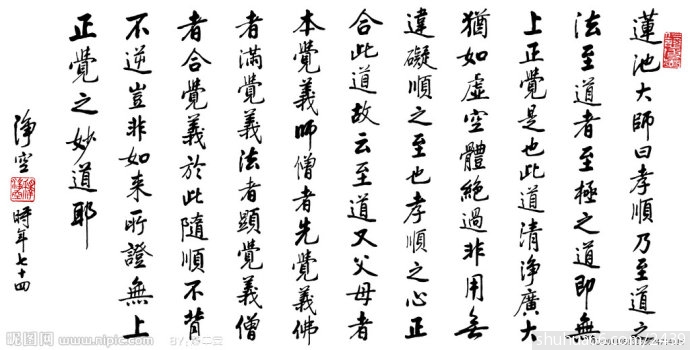 蓮池大師曰孝順乃至道之
法至道者至極之道即無
上正覺是也此道清淨廣大
猶如虛空體絕過非用無
違礙順之至也孝順之心正
合此道故云至道又父母者
本覺義師僧者先覺義佛
者滿覺義法者顯覺義僧
者合覺義於此隨順不背
不逆豈非如来所證無上
正覺之妙道耶
淨空
時年七十四
昵图网 www.nipic.com